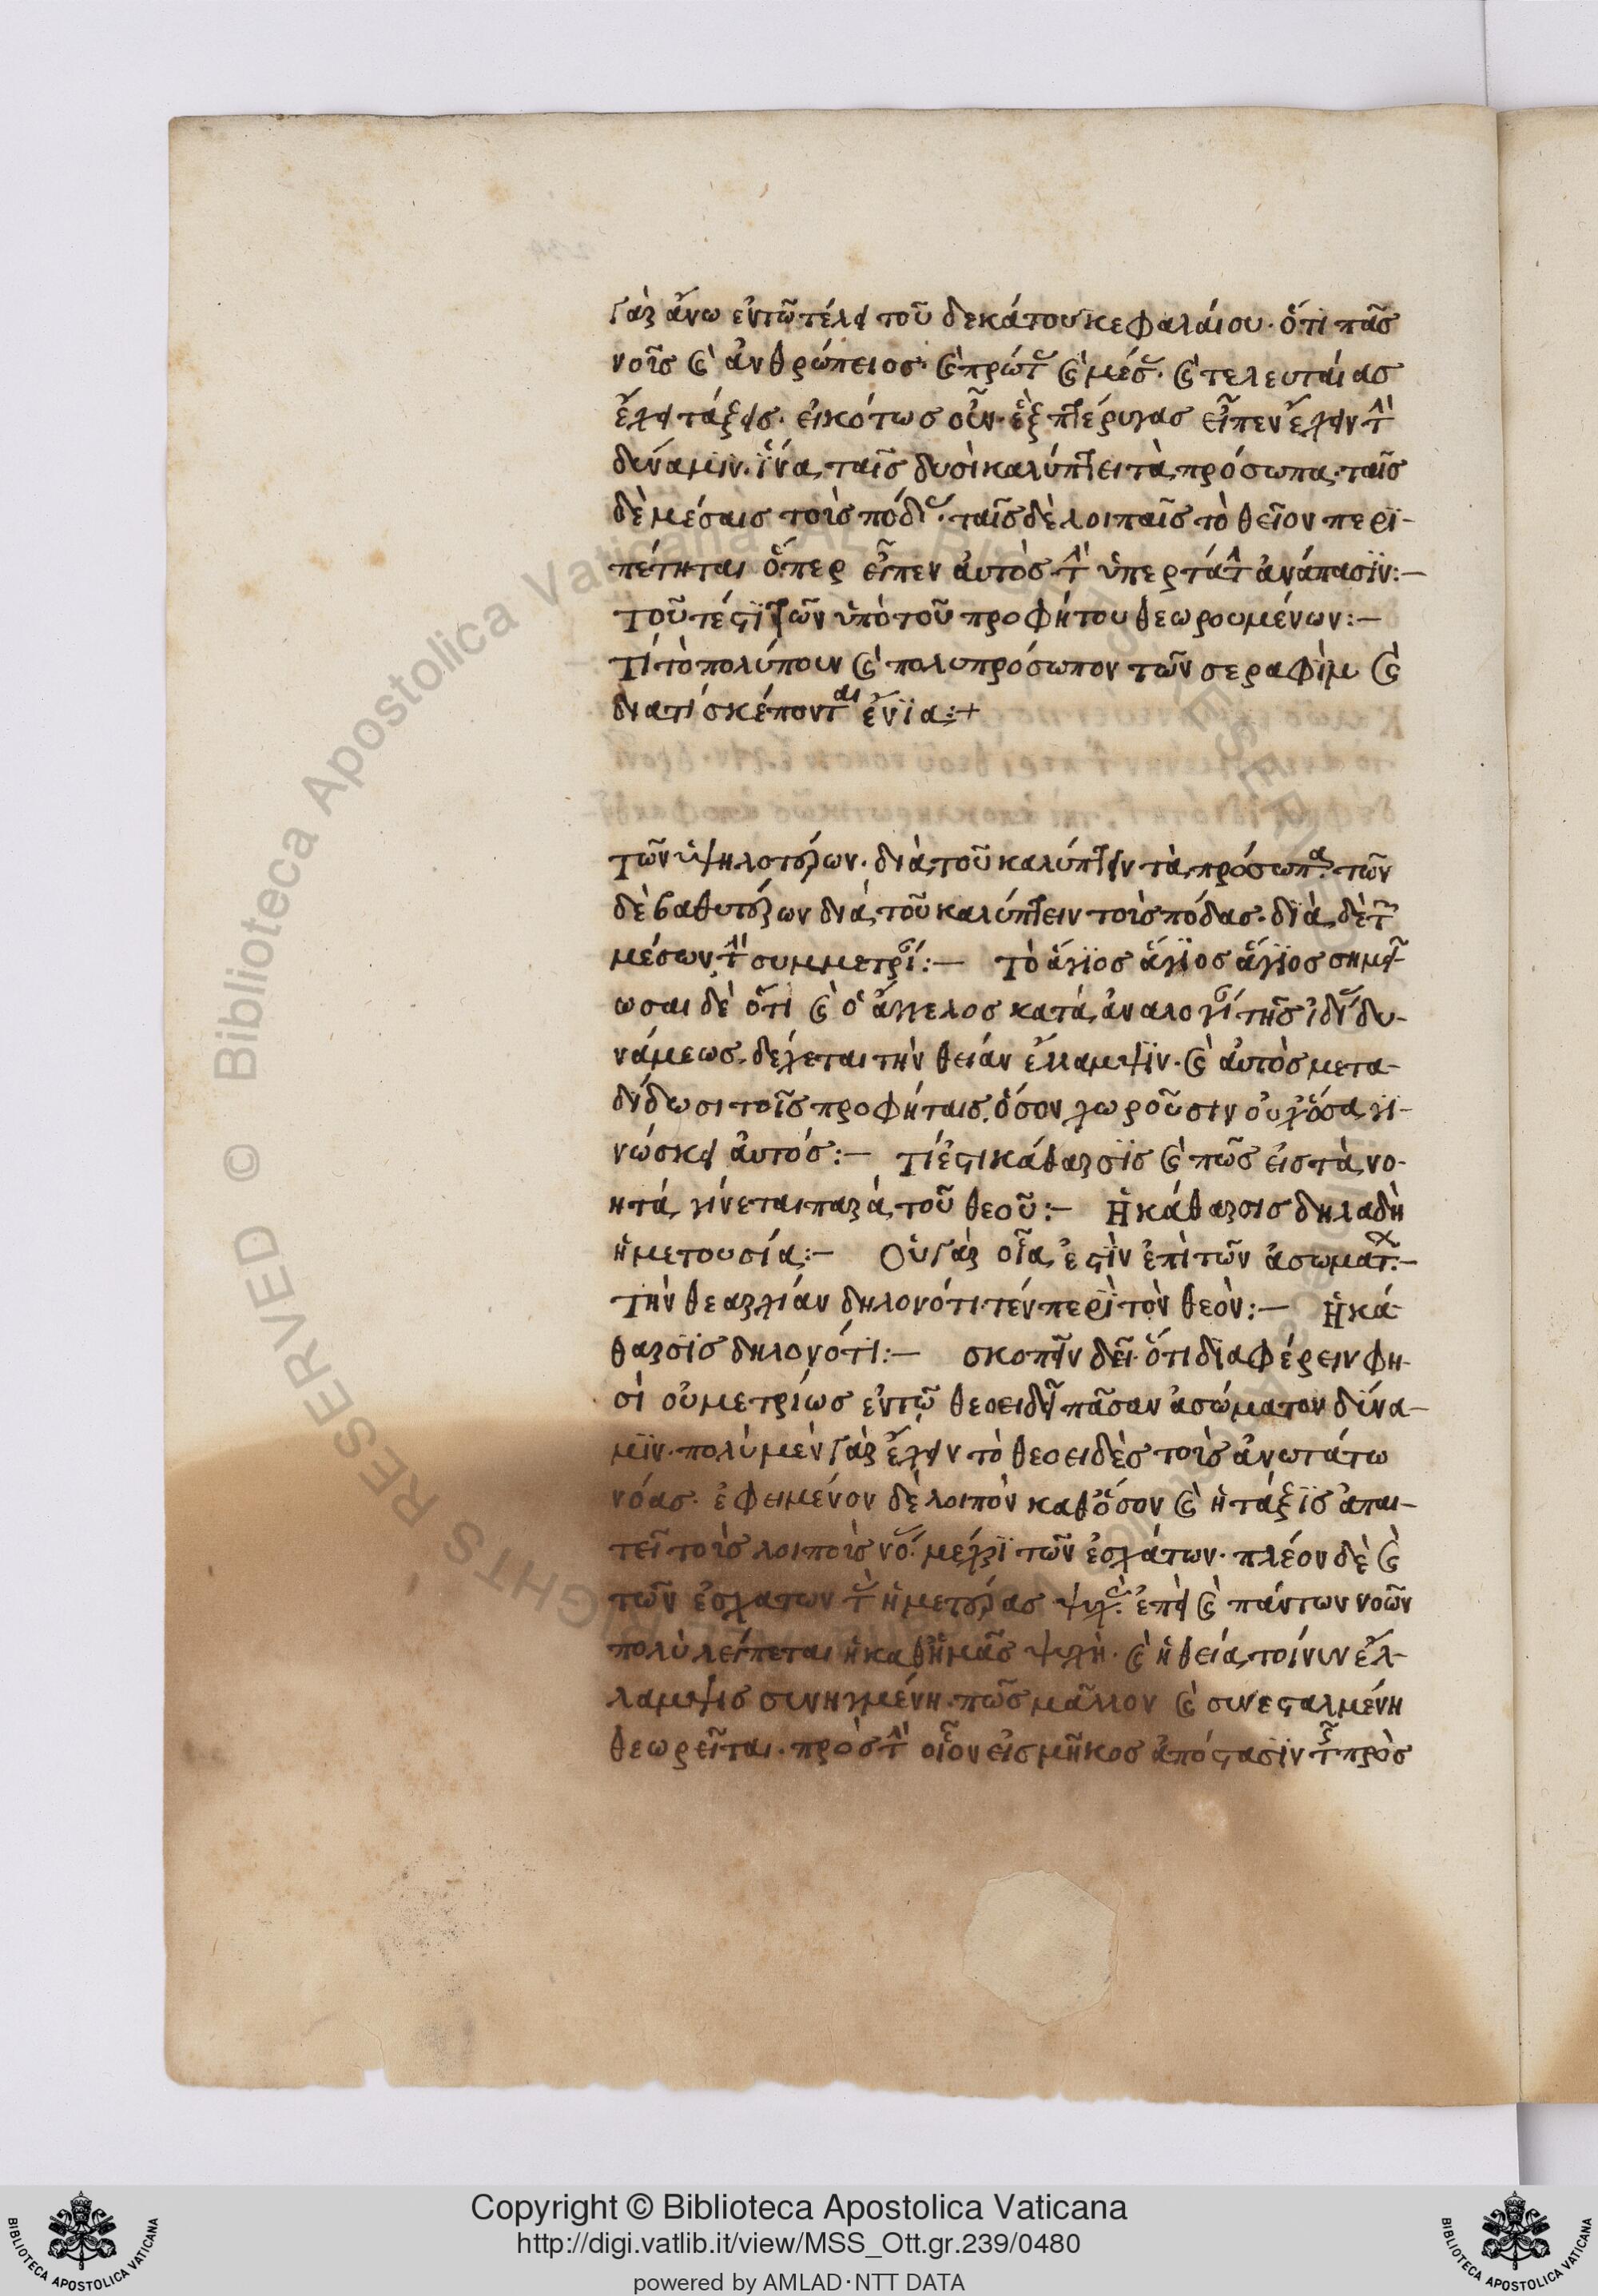 γὰρ ἄνω ἐν τῶ τέλει τοῦ δεκάτου κεφαλαίου· ὅτι πᾶσ
νοῦσ καὶ ἀνθρώπειοσ· καὶ πρώτ καὶ μέσ· καὶ τελευταίασ
ἔχει τάξεισ· εἰκότωσ οὖν· ἓξ πτέρυγασ εἶπεν ἔχειν τὴν
δύναμιν· ἵνα ταῖσ δυσὶ καλύπτει τὰ πρόσωπα· ταῖσ
δὲ μέσαισ τοὺσ πόδ· ταῖσ δὲ λοιπαῖσ τὸ θεῖον περι-
πέτηται ὅπερ εἶπεν αὐτὸσ τὴν ὑπερτάτην ἀνάπασιν:–
Τοῦτέστι τῶν ὑπὸ τοῦ προφήτου θεωρουμένων:–
Τί τὸ πολύπουν καὶ πολυπρόσωπον τῶν σεραφὶμ καὶ
διατί σκέπονται ἔνια:+
τῶν ὑψηλοτέρων· διὰ τοῦ καλύπτειν τὰ πρόσωπα· τῶν
δὲ βαθυτέρων διὰ τοῦ καλύπτειν τοὺσ πόδασ· διὰ δὲ τῶν
μέσων τὴν συμμετρί:– Τὸ ἅγιοσ ἅγιοσ ἅγιοσ σημεί-
ωσαι δὲ ὅτι καὶ ὁ ἄγγελοσ κατὰ ἀναλογί τῆσ ἰδί δυ-
νάμεωσ· δέχεται τὴν θείαν ἔλλαμψιν· καὶ αὐτὸσ μετα-
δίδωσι τοῖσ προφήταισ, ὅσον χωροῦσιν οὐχ ὅσα γι-
νώσκει αὐτόσ:– Τί ἐστι κάθαρσισ καὶ πῶσ εἰσ τὰ νο-
ητὰ γίνεται παρὰ τοῦ θεοῦ:– Ἡ κάθαρσισ δηλαδὴ
ἡ μετουσία:– Οὐ γὰρ οἷα ἐστὶν ἐπὶ τῶν ἀσωμάτ:–
Τὴν θεαρχίαν δηλονότι τὲν περὶ τὸν θεόν:– Ἡ κά-
θαρσισ δηλονότι:– σκοπεῖν δεῖ· ὅτι διαφέρειν φη-
σὶ οὐ μετρίωσ ἐν τῶ θεοειδεῖ πᾶσαν ἀσώματον δύνα-
μιν· πολὺ μὲν γὰρ ἔχειν τὸ θεοειδὲσ τοὺσ ἀνωτάτω
νόασ· ἐφειμένον δὲ λοιπὸν καθ ὅσον καὶ ἡ τάξισ ἀπαι-
τεῖ τοὺσ λοιποὺσ νό. μέχρι τῶν ἐσχάτων· πλέον δὲ καὶ
τῶν ἐσχατων τὰσ ἡμετέρασ ψυχὰσ· ἐπεὶ καὶ πάντων νοῶν
πολὺ λείπεται ἡ καθ ἡμᾶσ ψυχή· καὶ ἡ θεία τοίνυν ἔλ-
λαμψισ συνηγμένη πῶσ μᾶλλον καὶ συνεσταλμένη
θεωρεῖται· πρὸσ τὴν οἷον εἰσ μῆκοσ ἀπόστασιν τῆσ πρὸσ
Copyright © Biblioteca Apostolica Vaticana
http://digi.vatlib.it/view/MSS_Ott.gr.239/0480
powered by AMLAD·NTT DATA